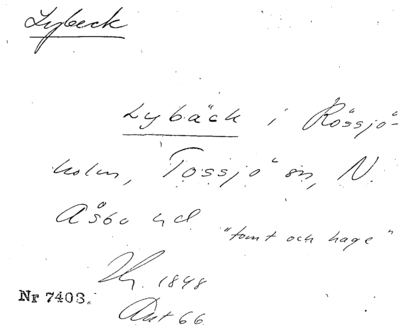 Lybeck
Lybäck i Rössjö-
holm, Tossjö sn, N.
Åsbo hd.
"tomt och hage"
1848
Nr 7403.
Aut 66